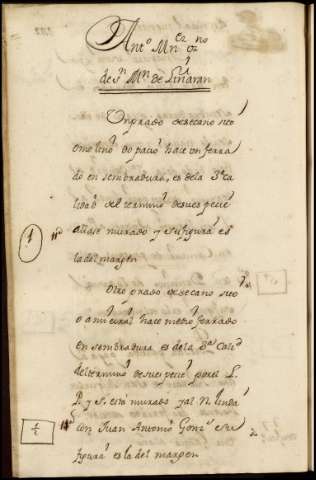 Antº Mnez vº
de Sn Mn de Liñaran
Un prado de secano sito
hace un ferra
do en sembradura, es de la 3ª ca
lidad del termino de su especie
allase murado y su figura es
la del margen
1
Otro prado de secano sito
hace medio ferrado
en sembradura es de la 3ª Calid
del termino de su especie por el L.
P. y S. está murado y al N. linda
con Juan Antonio Gonz. su
figura es la del margen
1/2